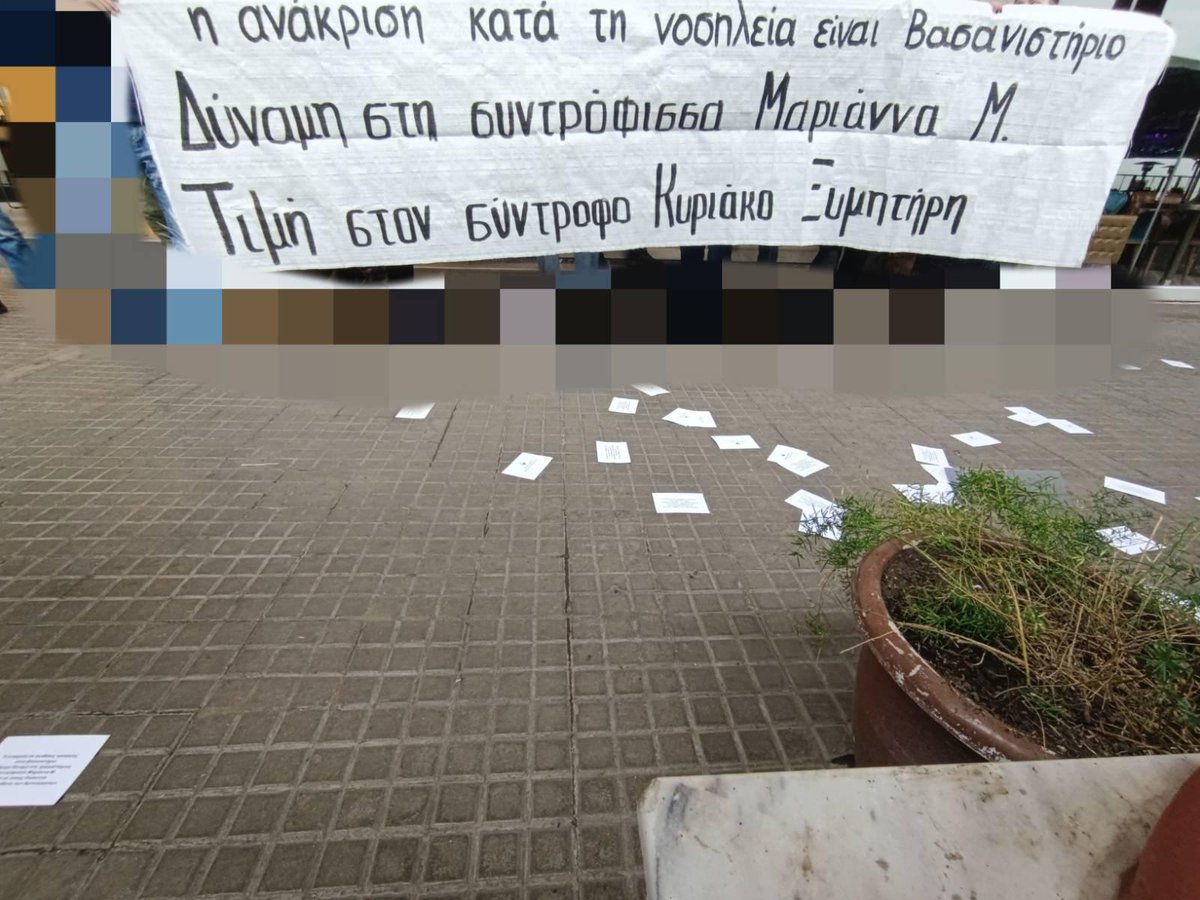 η ανάκριση κατά τη νοσηλεία είναι βασανιστήριο
Δύναμη στη συντρόφισσα Μαριάννα Μ.
Τιμή στον σύντροφο Κυριάκο Ξυμητήρη